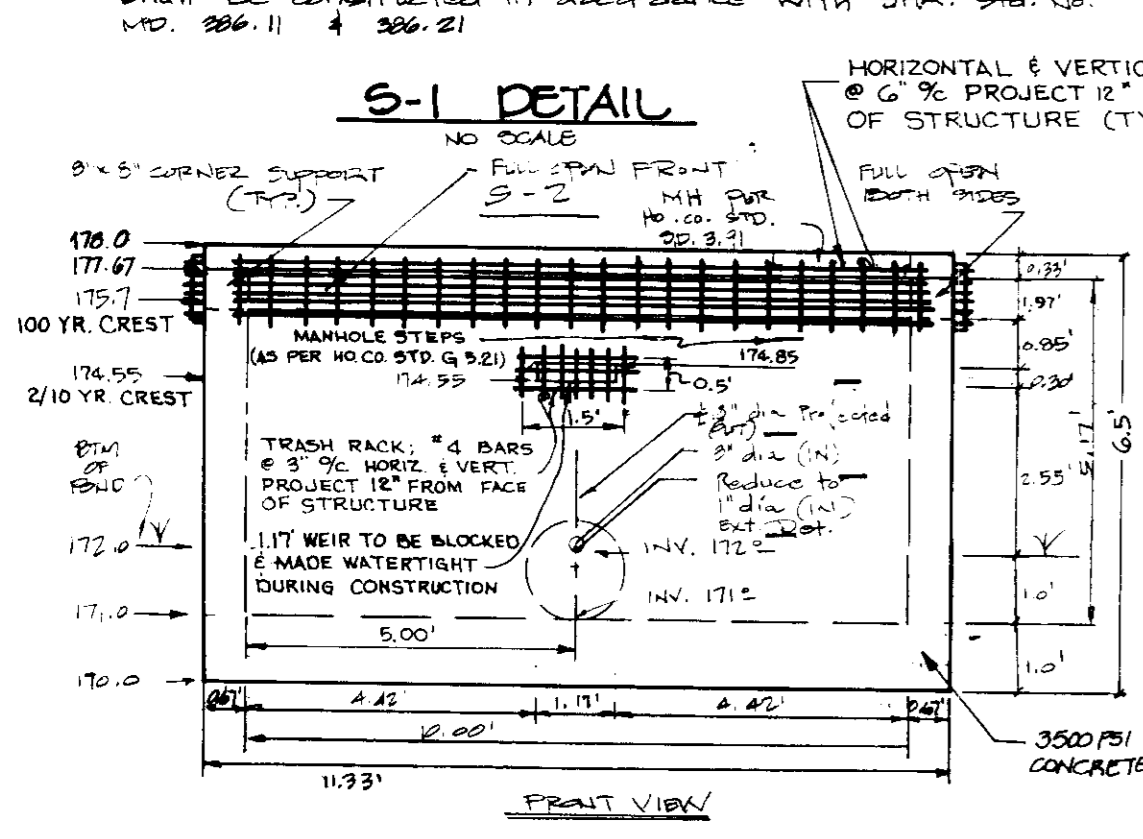 MD. 386.11 & 386.21
S-1 DETAIL
NO SCALE
HORIZONTAL & VERTIC
@ 6" %c PROJECT 12"
OF STRUCTURE (TY
8" x 8" CORNER SUPPORT
(TYP.)
FULL OPEN FRONT
S-2
MH PER
HO. CO. STD.
S.D. 3.91
FULL OPEN
BOTH SIDES
178.0
177.67
175.7
100 YR. CREST
174.55
2/10 YR. CREST
BTM
OF
POND
172.0
171.0
170.0
MANHOLE STEPS
(AS PER HO. CO. STD. G 5.21)
174.85
174.55
0.5'
1.5'
TRASH RACK; #4 BARS
@ 3" %c HORIZ. & VERT.
PROJECT 12" FROM FACE
OF STRUCTURE
1.17' WEIR TO BE BLOCKED
& MADE WATERTIGHT
DURING CONSTRUCTION
3" dia Projected
(OUT)
3" dia (IN)
Reduce to
1" dia (IN)
Ext. Det.
INV. 172.0
INV. 171.0
5.00'
0.33'
1.97'
0.85'
0.30'
2.55'
1.0'
1.0'
5.17'
6.5'
0.67'
4.42'
1.17'
4.42'
0.67'
10.00'
11.33'
3500 PSI
CONCRETE
FRONT VIEW